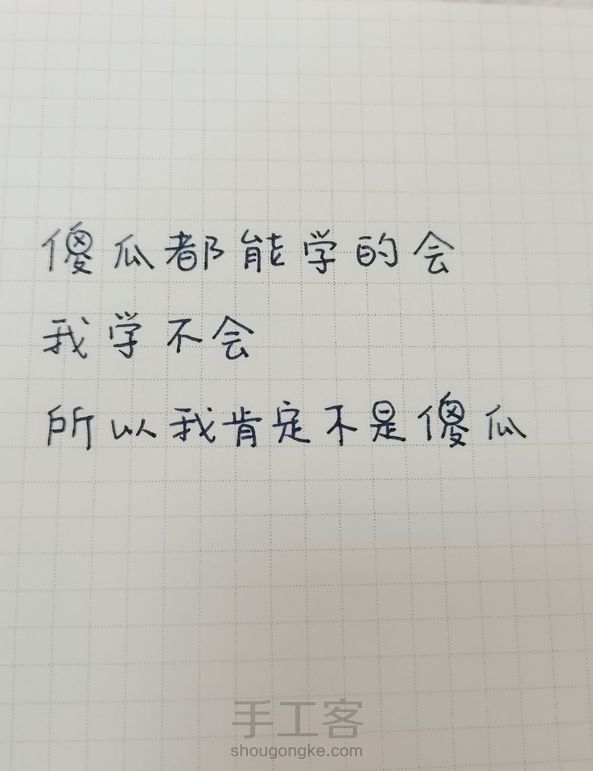 傻瓜都能学的会
我学不会
所以我肯定不是傻瓜
手工客
shougongke.com